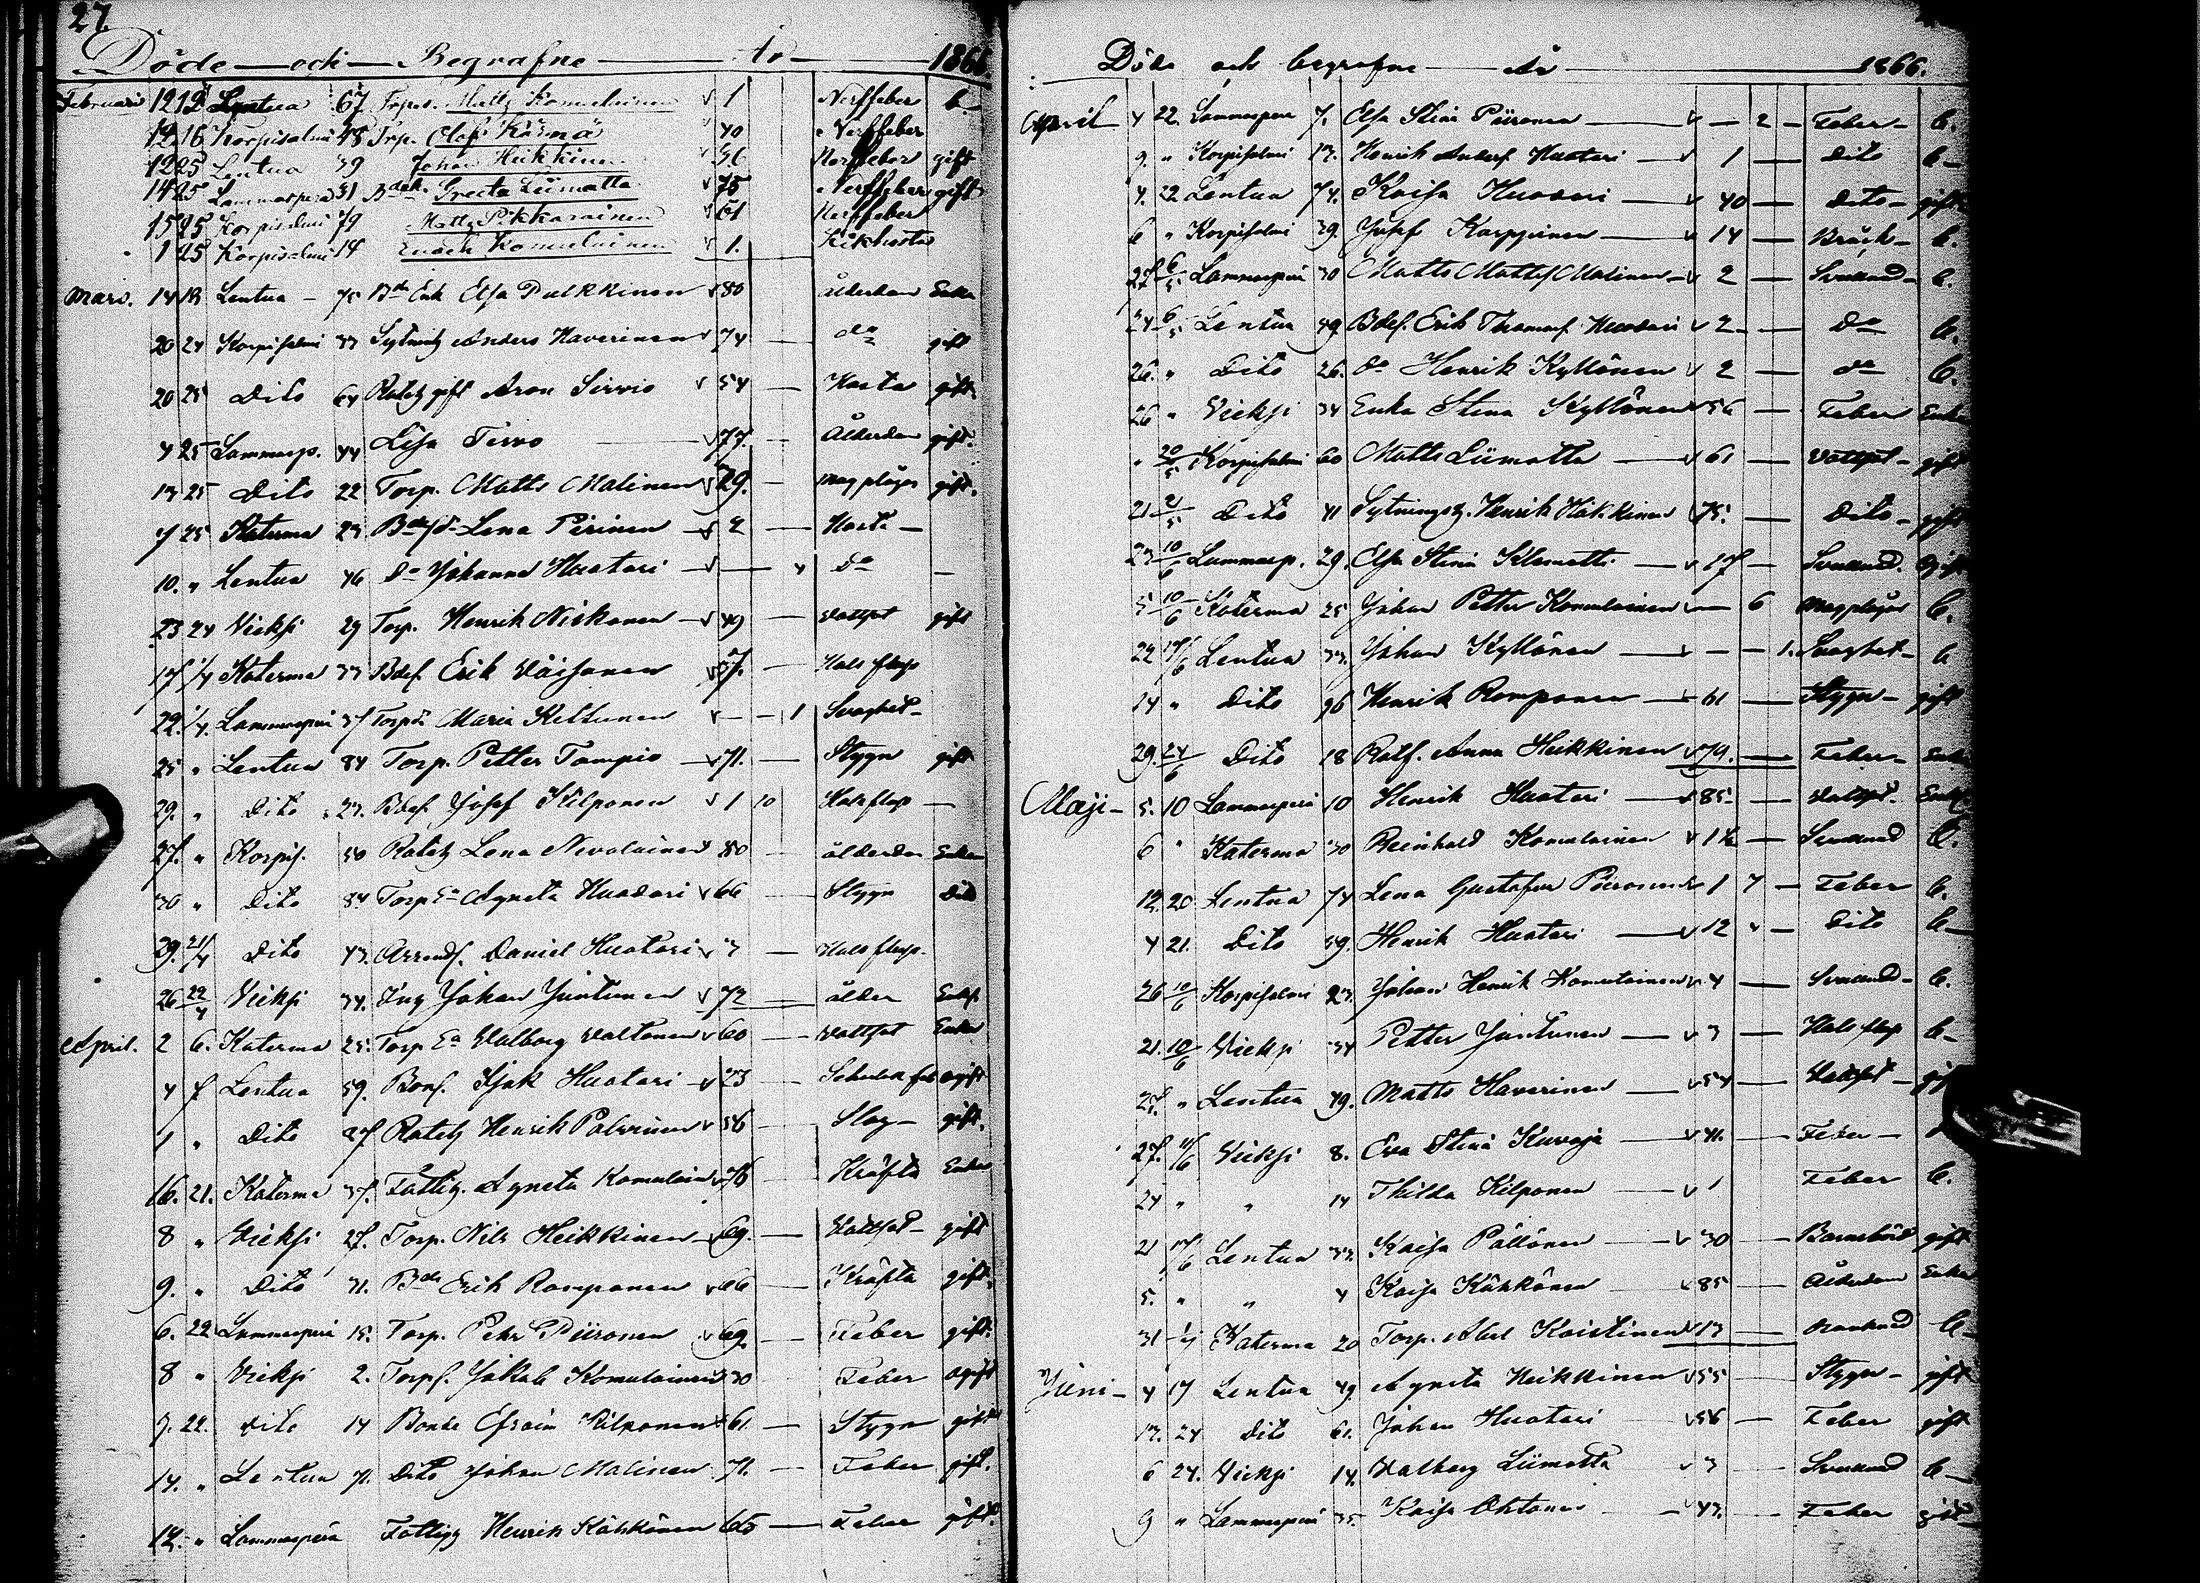 27.
Döde och Begrafne År 1866
Februari 12 18 Lentua 67 Torps. Matts Komulainen 1 Nerffeber b.
12 16 Korpisalmi 48 Torp. Olof Kärnä 40 Nerffeber
12 25 Lentua 39 Johan Heikkinen 36 Nerffeber gift
14 25 Lammaspera 31 Greeta Liimatta 75 Nerffeber gift
15 25 Korpisalmi 79 Matts Pikkarainen 61 Nerffeber
1 25 Korpisalmi 14 Enoch Komulainen 1. Kikhosta
Mars. 14 18 Lentua 75 Elsa Pulkkinen 80 ålderdom Enka
20 24 Korpisalmi 33 Sytning Anders Haverinen 74 do gift
20 25 Dito 64 Aron Sirvio 54 Hosta gift
4 25 Lammasp. 44 Lisa Tervo 77. Ålderdom gift.
13 25 Dito 22 Torp. Matts Malinen 29. Magplågor gift.
7 25 Katerma 23 Lena Piirinen 2 Hosta
10. " Lentua 46 do Johanna Huotari 4 do
23 24 Vieksi 29 Torp. Henrik Niskanen 49 Vattsot gift
17 1/4 Katerma 33 Bdes. Erik Väisänen 7. Halsflus
22. 1/4. Lammasperä 37 Maria Keltunen 1 Svaghet
25 " Lentua 84 Torp. Petter Tampio 71. Stygn gift
29. " Dito 23. Bdes. Josef Kilponen 1 10 Halsflus
27. " Korpis. 50 Lena Nevalainen 80 ålderdom Enka
30 " Dito 84 Torp Ea Agneta Huotari 66 Stygn Dito
29. 21/4 Dito 43. Arrends. Daniel Huotari 3 Halsflus.
26 22/4 Vieksi 34. Ing Johan Juntunen 72 ålder Enkl
April. 2 6. Katerma 25. Torp Ea Walborg Valtonen 60 Vattsot Enka
4 7 Lentua 59. Bons. Isak Huotari 23 ogift
1 " Dito 27 Henrik Palviainen 56 Slag gift.
16. 21. Katerma 37. Fattig. Agneta Komulainen 76 Kräfta Enka
8 " Vieksi 27. Torp. Nils Heikkinen 69. Vattsot gift
9. " Dito 31. Bde Erik Romponen 66 Kräfta gift.
6. 22 Lammasperä 15. Torp. Pehr Piironen 69. Feber gift.
8 " Vieksi 2. Torps. Jakob Komulainen 30 Feber ogift
9. 22. Dito 14 Bonde Efraim Kilponen 61. Stygn gift
14. " Lentua 71. Dito Johan Malinen 71. Feber gift.
12. " Lammasperä Fattig Henrik Kähkönen 65 Feber gift.
Döde och begrafne År 1866.
April 4 22. Lammaspera 7. Elsa Stina Piironen 2 Feber b.
9. " Korpisalmi 13. Henrik Anders. Huotari 1 Dito b
4. 22 Lentua 74. Kaisa Huotari 40 Dito gift
6 " Korpisalmi 39. Josef Karppinen 14 Bråck b.
27 6/5 Lammasperä 30 Matts Mattss Malinen 2 b.
24 6/5 Lentua 49. Bdes. Erik Thomas. Huotari 2 do b.
26. " Dito 26. do Henrik Kyllönen 2 do b.
26 " Vieksi 34 Enka Stina Kyllönen 56 Feber Enka
" 20/5 Korpisalmi 60 Matts Liimatta 61 Vattsot gift
21 2/5 Dito 41 Sytningsg. Henrik Häkkinen 75. Dito gift
23 10/6 Lammasp. 29. Elsa Stina Klemetti 17 Ogift
5 10/6 Katerma 25 Johan Petter Komulainen 6 Magplågor b.
22 17/6 Lentua 33. Johan Kyllönen 1. Svaghet b
14 " Dito 96 Henrik Romponen 61 Stygn gift
29. 24/6 Dito 18 Anna Heikkinen 79. Feber Enka
Maji 5. 10 Lammasperä 10 Henrik Huotari 85 Vattsot. Enkl
6 " Katerma 30 Reinhold Komulainen b.
12. 20 Lentua 74 Lena Gustafva Piironen 1 7 Feber b.
4 21. Dito 59. Henrik Huotari 12 Dito b
26 10/6 Korpisalmi 23. Johan Henrik Komulainen 4 b.
21. 10/6 Vieksi 34 Petter Juntunen 3 Halsflus b
27. " Lentua 49. Matts Haverinen 54 Vattsot
27. 11/6 Vieksi 8. Eva Stina Kuvaja 41. Feber
24 " " 14 Thilda Kilponen 1 Feber b.
21 17/6 Lentua 33. Kaisa Pällönen 30 Barnsbörd gift
5. " " 4 Kaisa Kähkönen 85 Ålderdom Enka
31 Katerma 20 Torp. Abel Koistinen 13 b
Juni 4 17 Lentua 49 Agneta Heikkinen 55 Stygn gift
13. 24 Dito 61. Johan Huotari 56 Feber gift
6 24. Vieksi 14. Valborg Liimatta 3 b
9 " Lammasperä 35. Kaisa Ohtonen 43. Feber gift